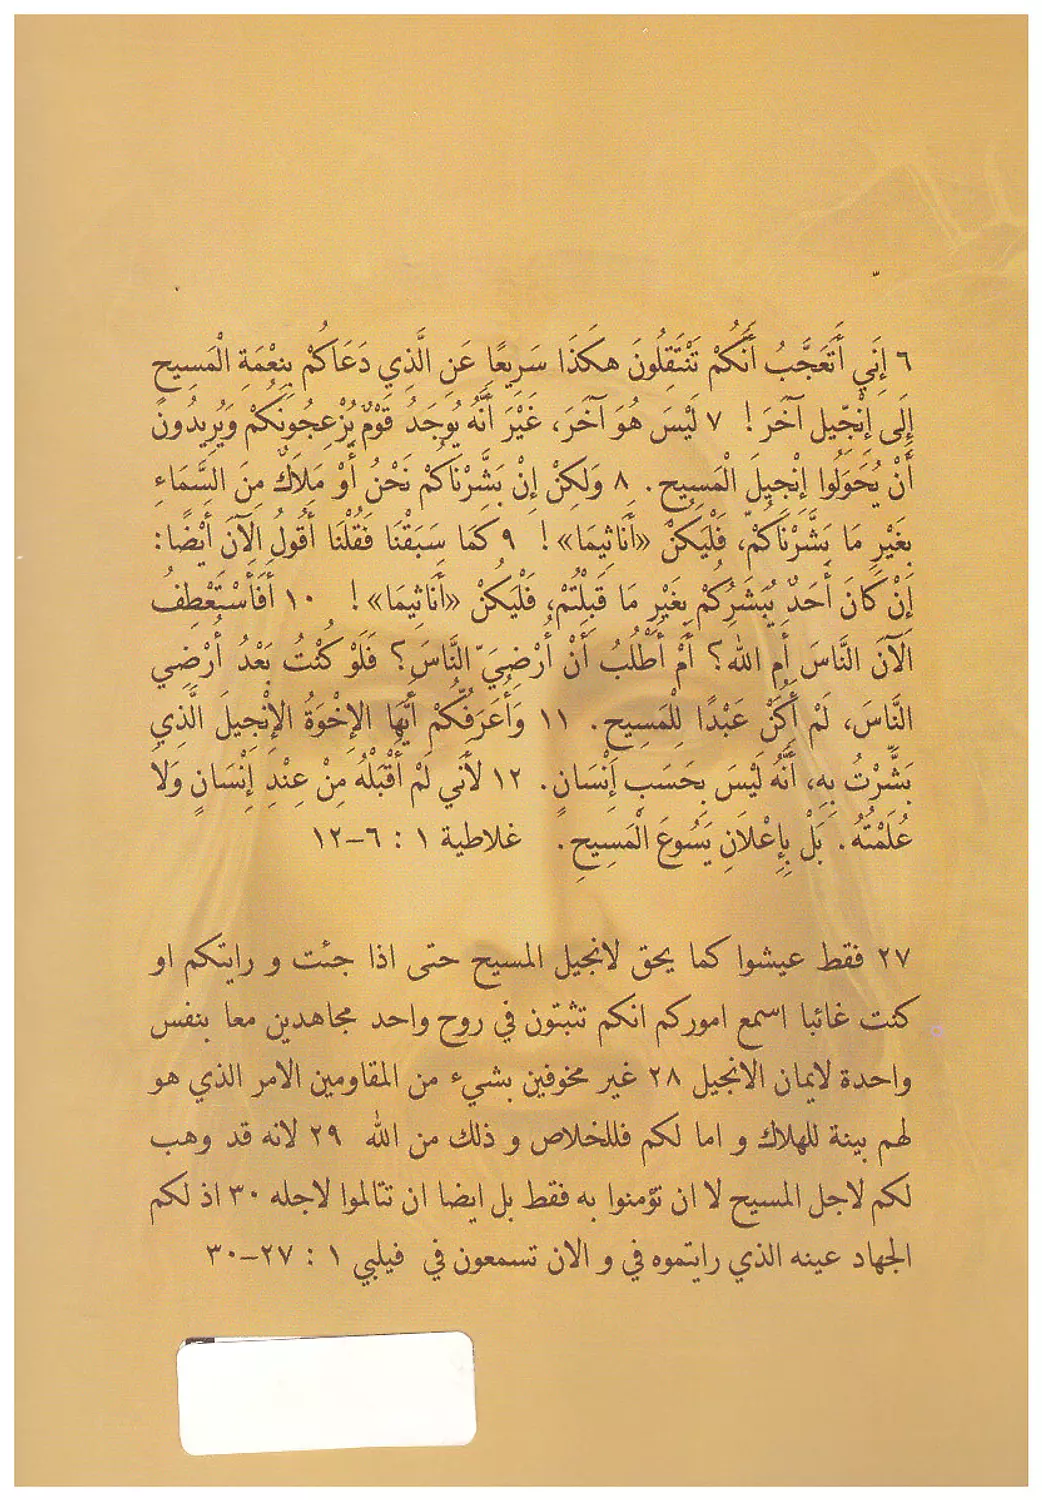 ٦ إِنِّي أَتَعَجَّبُ أَنَّكُمْ تَنْتَقِلُونَ هكَذَا سَرِيعًا عَنِ الَّذِي دَعَاكُمْ بِنِعْمَةِ الْمَسِيحِ
إِلَى إِنْجِيل آخَرَ! ٧ لَيْسَ هُوَ آخَرَ، غَيْرَ أَنَّهُ يُوجَدُ قَوْمٌ يُزْعِجُونَكُمْ وَيُرِيدُونَ
أَنْ يُحَوِّلُوا إِنْجِيلَ الْمَسِيحِ. ٨ وَلكِنْ إِنْ بَشَّرْنَاكُمْ نَحْنُ أَوْ مَلاَكٌ مِنَ السَّمَاءِ
بِغَيْرِ مَا بَشَّرْنَاكُمْ، فَلْيَكُنْ «أَنَاثِيمَا»! ٩ كَمَا سَبَقْنَا فَقُلْنَا أَقُولُ الآنَ أَيْضًا:
إِنْ كَانَ أَحَدٌ يُبَشِّرُكُمْ بِغَيْرِ مَا قَبِلْتُمْ، فَلْيَكُنْ «أَنَاثِيمَا»! ١٠ أَفَأَسْتَعْطِفُ
الآنَ النَّاسَ أَمِ اللهَ؟ أَمْ أَطْلُبُ أَنْ أُرْضِيَ النَّاسَ؟ فَلَوْ كُنْتُ بَعْدُ أُرْضِي
النَّاسَ، لَمْ أَكُنْ عَبْدًا لِلْمَسِيحِ. ١١ وَأُعَرِّفُكُمْ أَيُّهَا الإِخْوَةُ الإِنْجِيلَ الَّذِي
بَشَّرْتُ بِهِ، أَنَّهُ لَيْسَ بِحَسَبِ إِنْسَانٍ. ١٢ لأَنِّي لَمْ أَقْبَلْهُ مِنْ عِنْدِ إِنْسَانٍ وَلاَ
عُلِّمْتُهُ. بَلْ بِإِعْلاَنِ يَسُوعَ الْمَسِيحِ. غلاطية ١ : ٦-١٢
٢٧ فقط عيشوا كما يحق لانجيل المسيح حتى اذا جئت و رايتكم او
كنت غائبا اسمع اموركم انكم تثبتون في روح واحد مجاهدين معا بنفس
واحدة لايمان الانجيل ٢٨ غير مخوفين بشيء من المقاومين الامر الذي هو
لهم بينة للهلاك و اما لكم فللخلاص و ذلك من الله ٢٩ لانه قد وهب
لكم لاجل المسيح لا ان تؤمنوا به فقط بل ايضا ان تتالموا لاجله ٣٠ اذ لكم
الجهاد عينه الذي رايتموه في و الان تسمعون في فيلبي ١ : ٢٧-٣٠